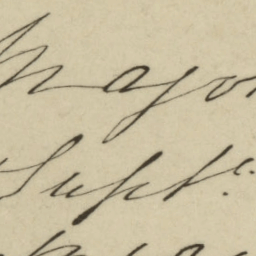 Major
Supt.